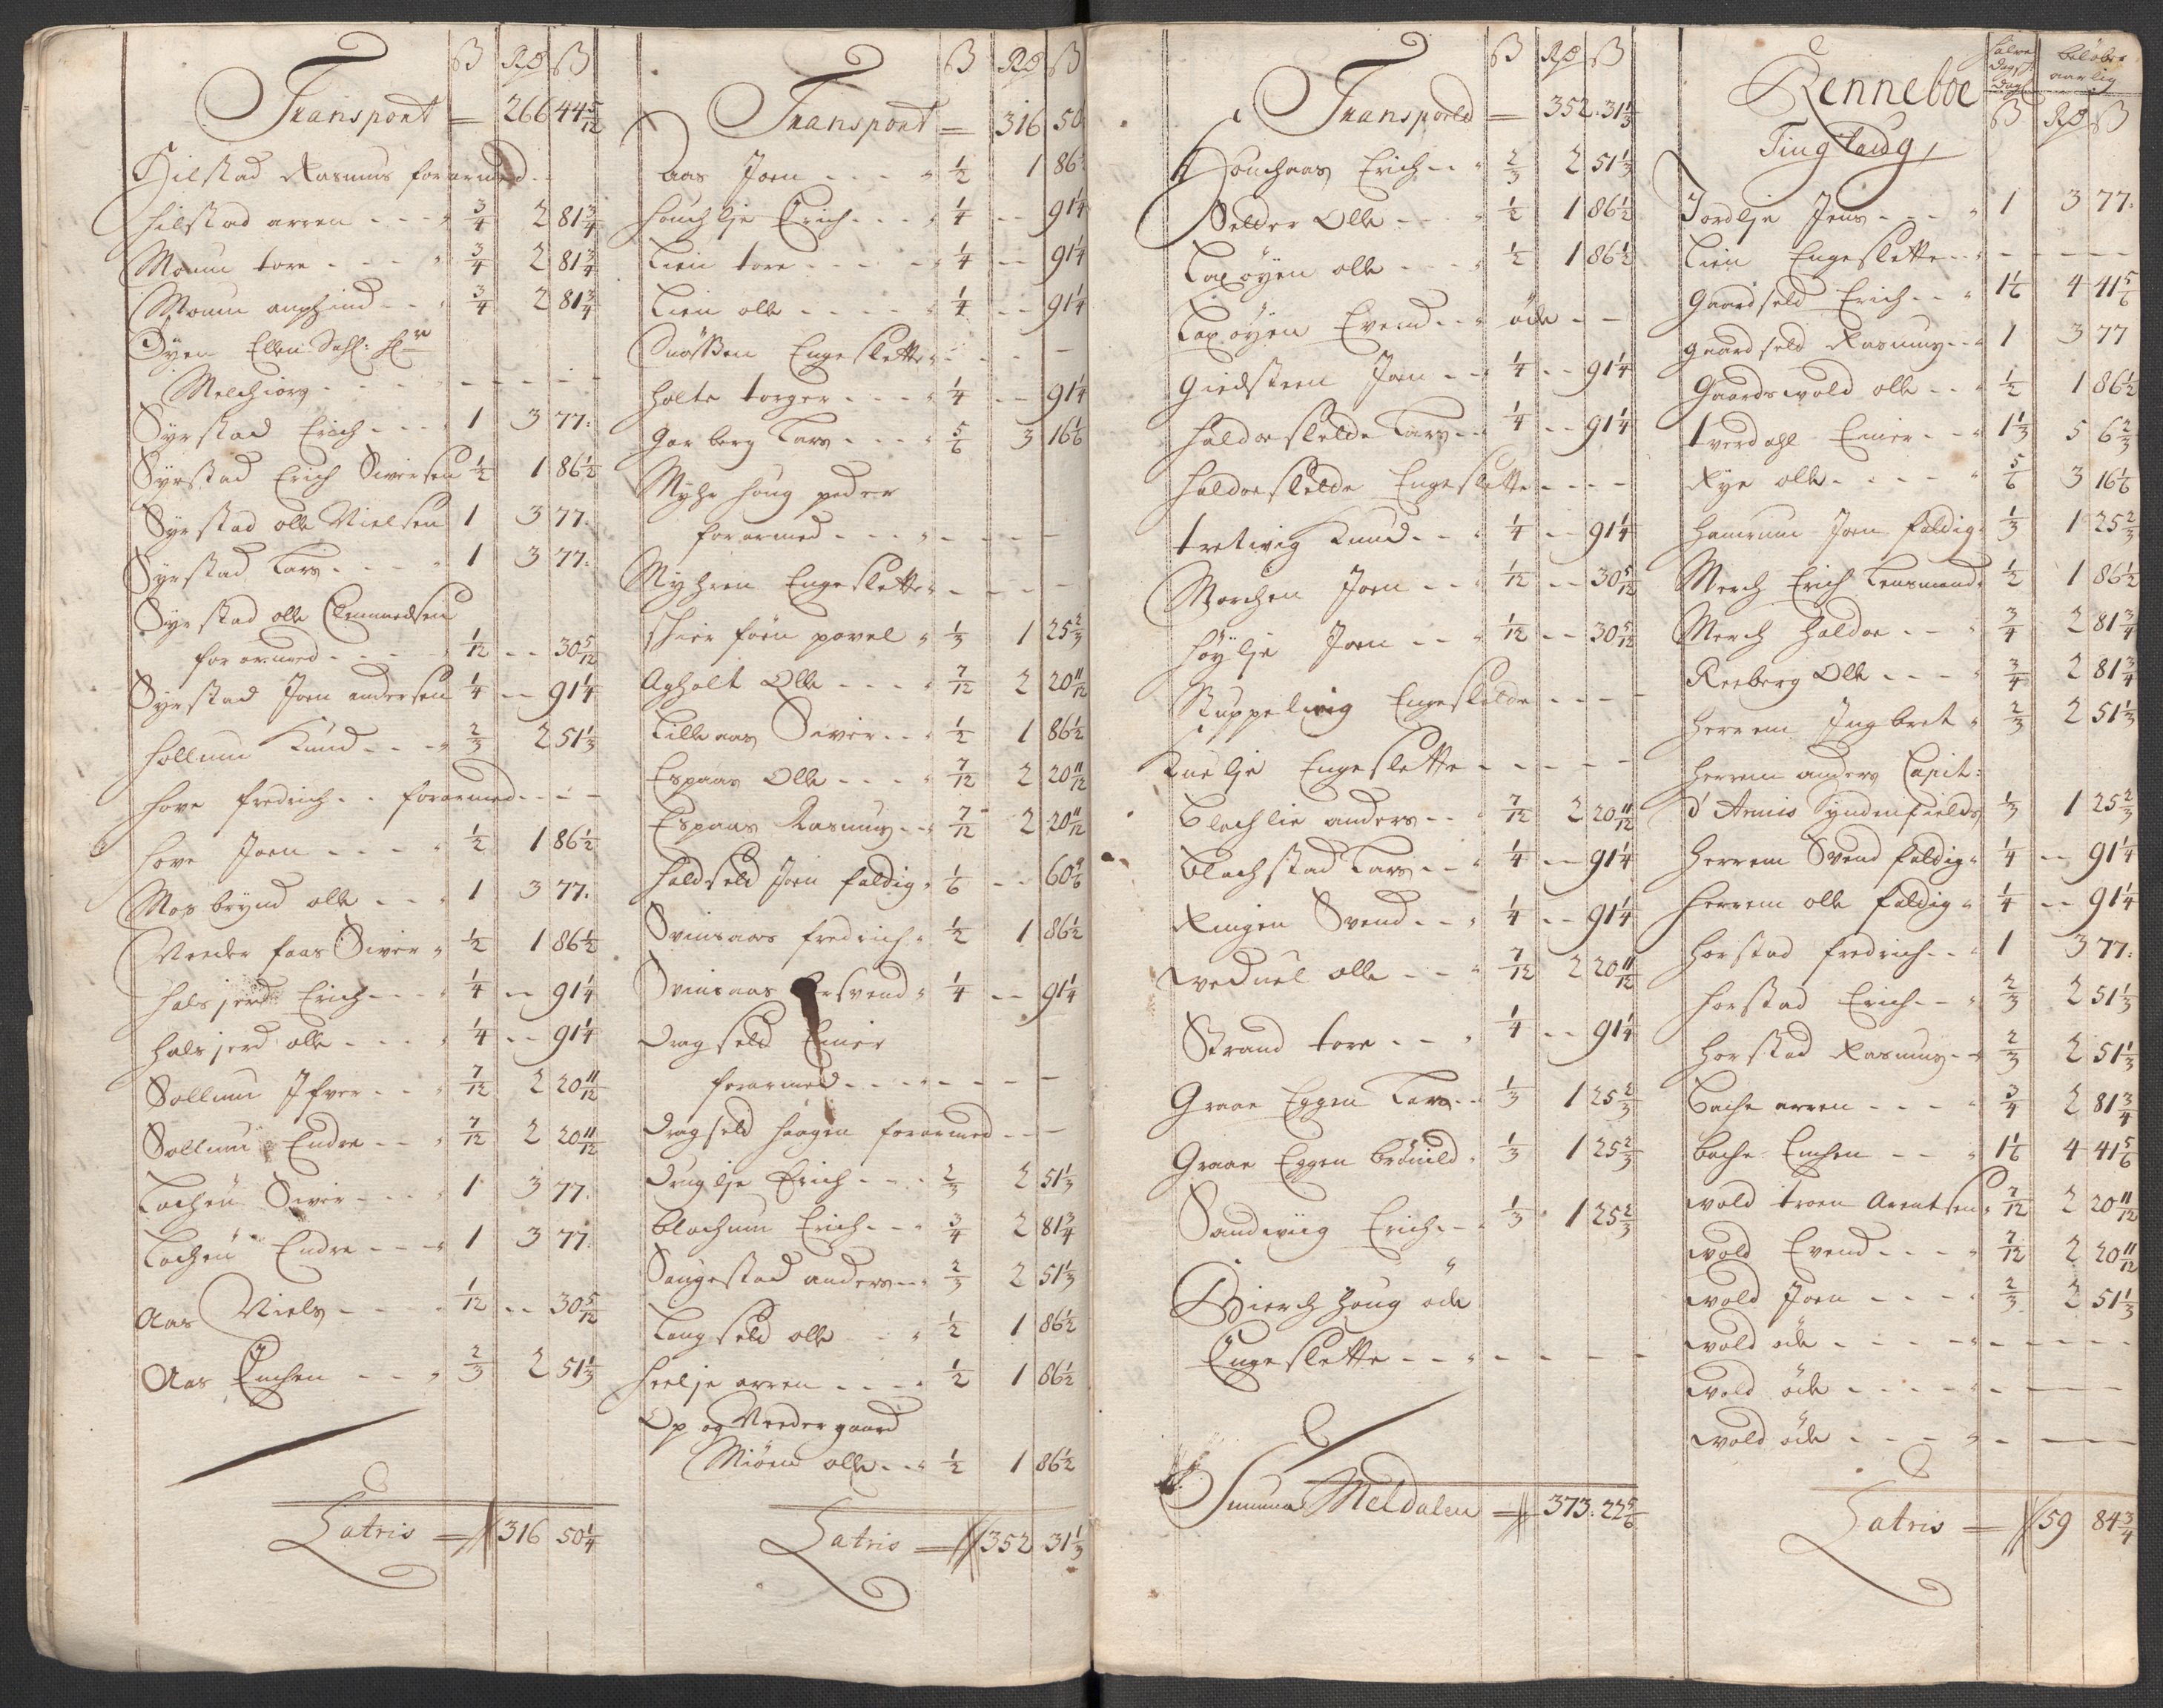 ß Rd ß
Transport = 266 44 5/12
Hilstad Rasmus forarmed
Hilstad arren 3/4 2 81 3/4
Moum tore 3/4 2 81 3/4
Moum amphind 3/4 2 81 3/4
Öyen Ellen Sahl:
Melchiors
Syrstad Erich 1 3 77
Syrstad Erich Siversen 1/2 1 86 1/2
Syrstad olle Nielsen 1 3 77
Syrstad Lars 1 3 77
Syrstad olle Clemmedsen
forarmed 1/12 30 5/12
Syrstad Joen andersen 1/4 91 1/4
Hollum Knud 2/3 2 51 1/3
Hove fredrich forarmed
Hove Joen 1/2 1 86 1/2
Mosbrynd olle 1 3 77
Siver 1/2 1 86 1/2
Halsjerd Erich 1/4 91 1/4
Halsjerd olle 1/4 91 1/4
Sollum Ifver 7/12 2 20 11/12
Sollum Endre 7/12 2 20 11/12
Lochen Siver 1 3 77
Lochen Endre 1 3 77
Aas Niels 1/12 30 5/12
Aas Emchen 2/3 2 51 1/3
Latris = 316 50 1/4
ß Rd ß
Transport = 316 50
Aas Joen 1/2 1 86
Houchlje Erich 1/4 91 1/4
Lien tore 1/4 91 1/4
Lien olle 1/4 91 1/4
Engeslette
Holte torger 1/4 91 1/4
Garberg Lars 5/6 3 16 1/6
Myhr houg peder
forarmed
Myhren Engeslette
povel 1/3 1 25 2/3
Agholt Olle 7/12 2 20 11/12
Lilleaas Siver 1/2 1 86 1/2
Espaas Olle 7/12 2 20 11/12
Espaas Rasmus 7/12 2 20 11/12
Holdseld Joen faldig 1/6 60 5/6
Svinsaas fredrich 1/2 1 86 1/2
Svinsaas 1/4 91 1/4
Dragseld Einer
forarmed
Dragseld haagen forarmed
Druglje Erich 2/3 2 51 1/3
Blochum Erich 3/4 2 81 3/4
Saugestad anders 2/3 2 51 1/3
Langseld olle 1/2 1 86 1/2
Heelje arren 1/2 1 86 1/2
Op og Needergaard
Möen olle 1/2 1 86 1/2
Latris = 352 31 1/3
ß Rd ß
Transport = 352 31 1/3
Erich 2/3 2 51 1/3
Selder Olle 1/2 1 86 1/2
Laxöyen olle 1/2 1 86 1/2
Laxöyen Evend öde
Giedsteen Joen 1/4 91 1/4
Haldoeslelde Lars 1/4 91 1/4
Haldoeslelde Engeslette
tretivig Knud 1/4 91 1/4
Morchen Joen 1/12 30 5/12
Höylje Joen 1/12 30 5/12
Engeslelde
Kuelje Engeslette
Blochlie anders 7/12 2 20 11/12
Blochstad Lars 1/4 91 1/4
Ringen Svend 1/4 91 1/4
olle 7/12 2 20 11/12
Strand tore 1/4 91 1/4
Graae Eggen Lars 1/3 1 25 2/3
Graae Eggen brönild 1/3 1 25 2/3
Sandwiig Erich 1/3 1 25 2/3
Bierch houg öde
Engeslette
Summa Meldalen = 373 22 5/6
Renneboe
Tinglaug,
halve dags dag ß
beløber aarlig
Rd ß
Jordlje Jens 1 3 77
Lien Engeslette
Gaardseld Erich 1 1/6 4 41 5/6
Gaardseld Rasmus 1 3 77
Gaardsvold olle 1/2 1 86 1/2
tverdahl Einer 1 1/3 5 6 2/3
Rye olle 5/6 3 16 1/6
Hamrum Joen faldig 1/3 1 25 2/3
Merch Erich Lensmand 1/2 1 86 1/2
Merch Haldoe 3/4 2 81 3/4
Reeberg Olle 3/4 2 81 3/4
Herrem Ingbret 2/3 2 51 1/3
Herrem anders Capit:
d'Armis Syndenfields 1/3 1 25 2/3
Herrem Svend faldig 1/4 91 1/4
Herrem olle faldig 1/4 91 1/4
Horstad fredrich 1 3 77
Horstad Erich 2/3 2 51 1/3
Horstad Rasmus 2/3 2 51 1/3
Bache arren 3/4 2 81 3/4
Bache Emchen 1 1/6 4 41 5/6
vold troen Arentsen 7/12 2 20 11/12
vold Evend 7/12 2 20 11/12
vold Joen 2/3 2 51 1/3
vold öde
vold öde
vold öde
Latris = 59 84 3/4